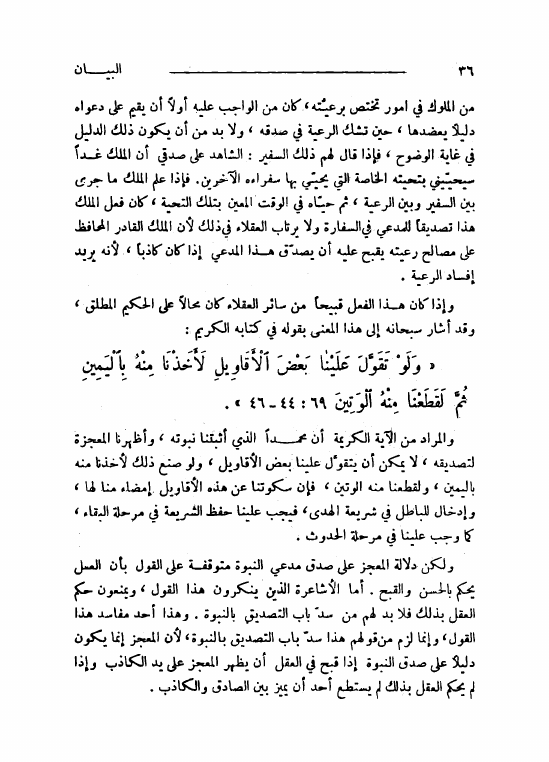 ٣٦ البيـــان
من الملوك في امور تختص برعيّته، كان من الواجب عليه أولاً أن يقيم على دعواه
دليلاً يعضدها، حين تشك الرعية في صدقه، ولا بد من أن يكون ذلك الدليل
في غاية الوضوح، فإذا قال لهم ذلك السفير : الشاهد على صدقي أن الملك غـداً
سيحيّيني بتحيته الخاصة التي يحيّي بها سفراءه الآخرين. فإذا علم الملك ما جرى
بين السفير وبين الرعية، ثم حيّاه في الوقت المعين بتلك التحية، كان فعل الملك
هذا تصديقاً للمدعي في السفارة ولا يرتاب العقلاء في ذلك لأن الملك القادر المحافظ
على مصالح رعيته يقبح عليه أن يصدّق هـذا المدعي إذا كان كاذباً، لأنه يريد
إفساد الرعية .
وإذا كان هـذا الفعل قبيحاً من سائر العقلاء كان محالاً على الحكيم المطلق،
وقد أشار سبحانه إلى هذا المعنى بقوله في كتابه الكريم :
« وَلَوْ تَقَوَّلَ عَلَيْنَا بَعْضَ ٱلْأَقَاوِيلِ لَأَخَذْنَا مِنْهُ بِٱلْيَمِينِ
ثُمَّ لَقَطَعْنَا مِنْهُ ٱلْوَتِينَ ٦٩ : ٤٤ – ٤٦ » .
والمراد من الآية الكريمة أن محمـداً الذي أثبتنا نبوته، وأظهرنا المعجزة
لتصديقه، لا يمكن أن يتقول علينا بعض الأقاويل، ولو صنع ذلك لأخذنا منه
باليمين، ولقطعنا منه الوتين، فإن سكوتنا عن هذه الأقاويل إمضاء منا لها،
وإدخال للباطل في شريعة الهدى، فيجب علينا حفظ الشريعة في مرحلة البقاء،
كما وجب علينا في مرحلة الحدوث .
ولكن دلالة المعجز على صدق مدعي النبوة متوقفة على القول بأن العقل
يحكم بالحسن والقبح . أما الأشاعرة الذين ينكرون هذا القول، ويمنعون حكم
العقل بذلك فلا بد لهم من سدّ باب التصديق بالنبوة . وهذا أحد مفاسد هذا
القول، وإنما لزم من قولهم هذا سدّ باب التصديق بالنبوة، لأن المعجز إنما يكون
دليلاً على صدق النبوة إذا قبح في العقل أن يظهر المعجز على يد الكاذب وإذا
لم يحكم العقل بذلك لم يستطع أحد أن يميز بين الصادق والكاذب .